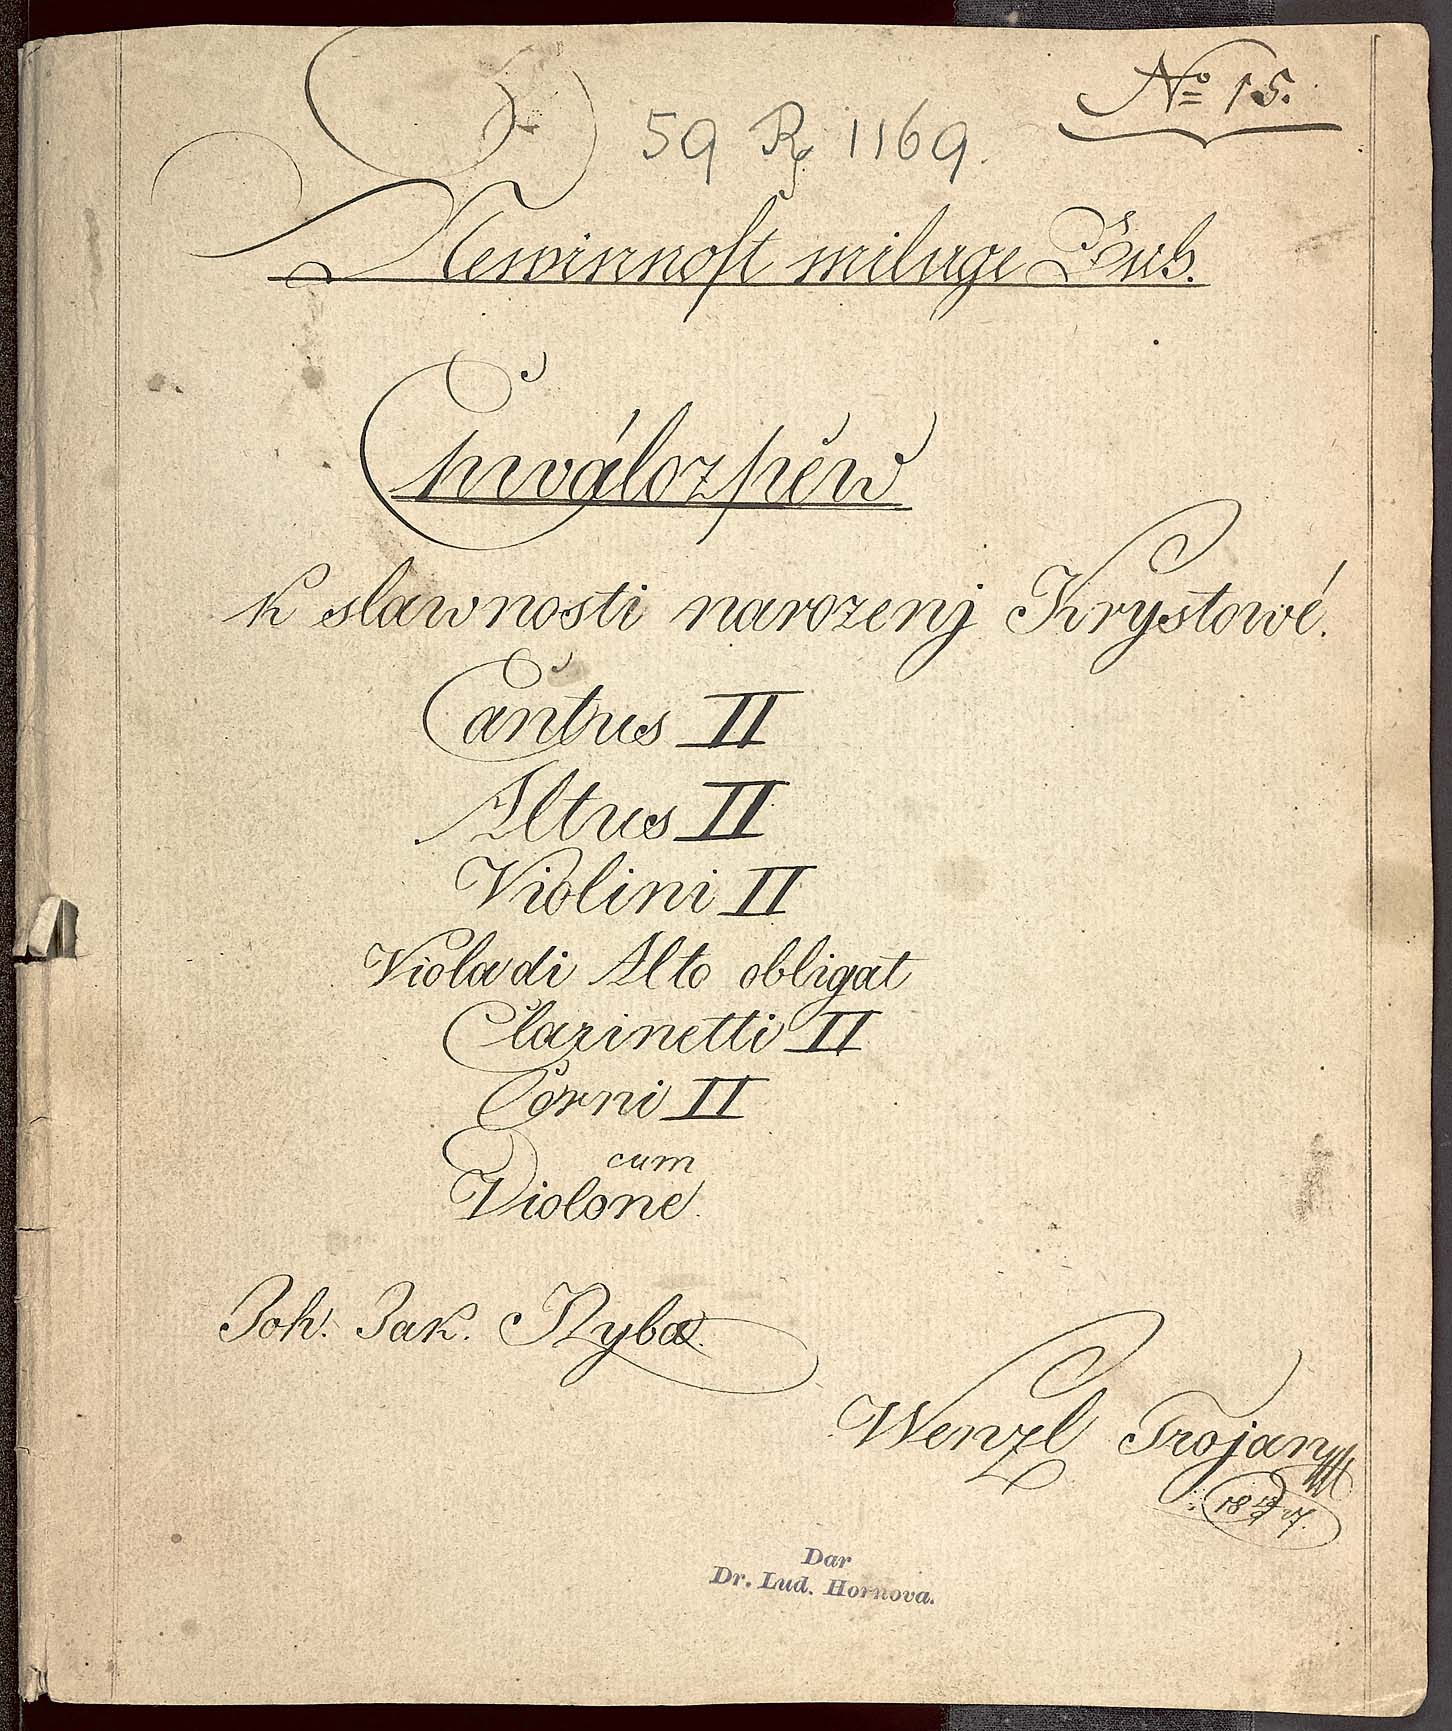 No 15.
59 R 1169.
Newinnost miluge Buh.
Chwálozpěw
k slawnosti narozenj Krystowé.
Cantus II
Altus II
Violini II
Viola di Alto obligat
Clarinetti II
Corni II
cum
Violone.
Joh. Jak. Ryba.
Wenzl Trojan
Dar
Dr. Lud. Hornova.